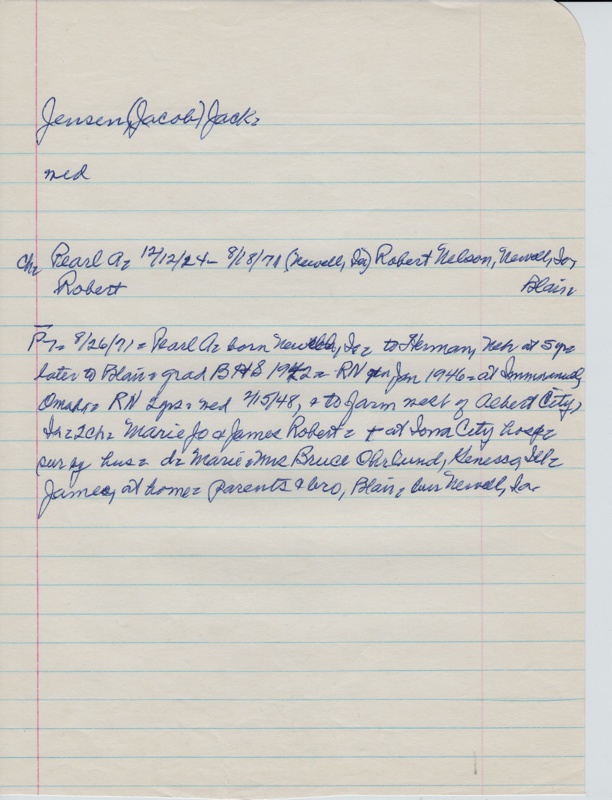 Jensen, (Jacob) Jack=
med
ch= Pearl A= 12/12/24 - 8/18/71 (Newell, Ia) Robert Nelson, Newell, Ia,
Robert Blair=
P7= 8/26/71= Pearl A= born Newell, Ia= to Herman, Neb at 5 yr=
later to Blair= grad BHS 1942= RN in Jan 1946= at Immanuel,
Omaha= RN 2 yrs= med 2/15/48, & to farm west of Albert City,
Ia= 2 ch= Marie Jo & James Robert= + at Iowa City hosp=
sur by hus= d= Marie= Mrs Bruce Ohrlund, Genesso, Ill=
James, at home= parents & bro, Blair= bur Newell, Ia=